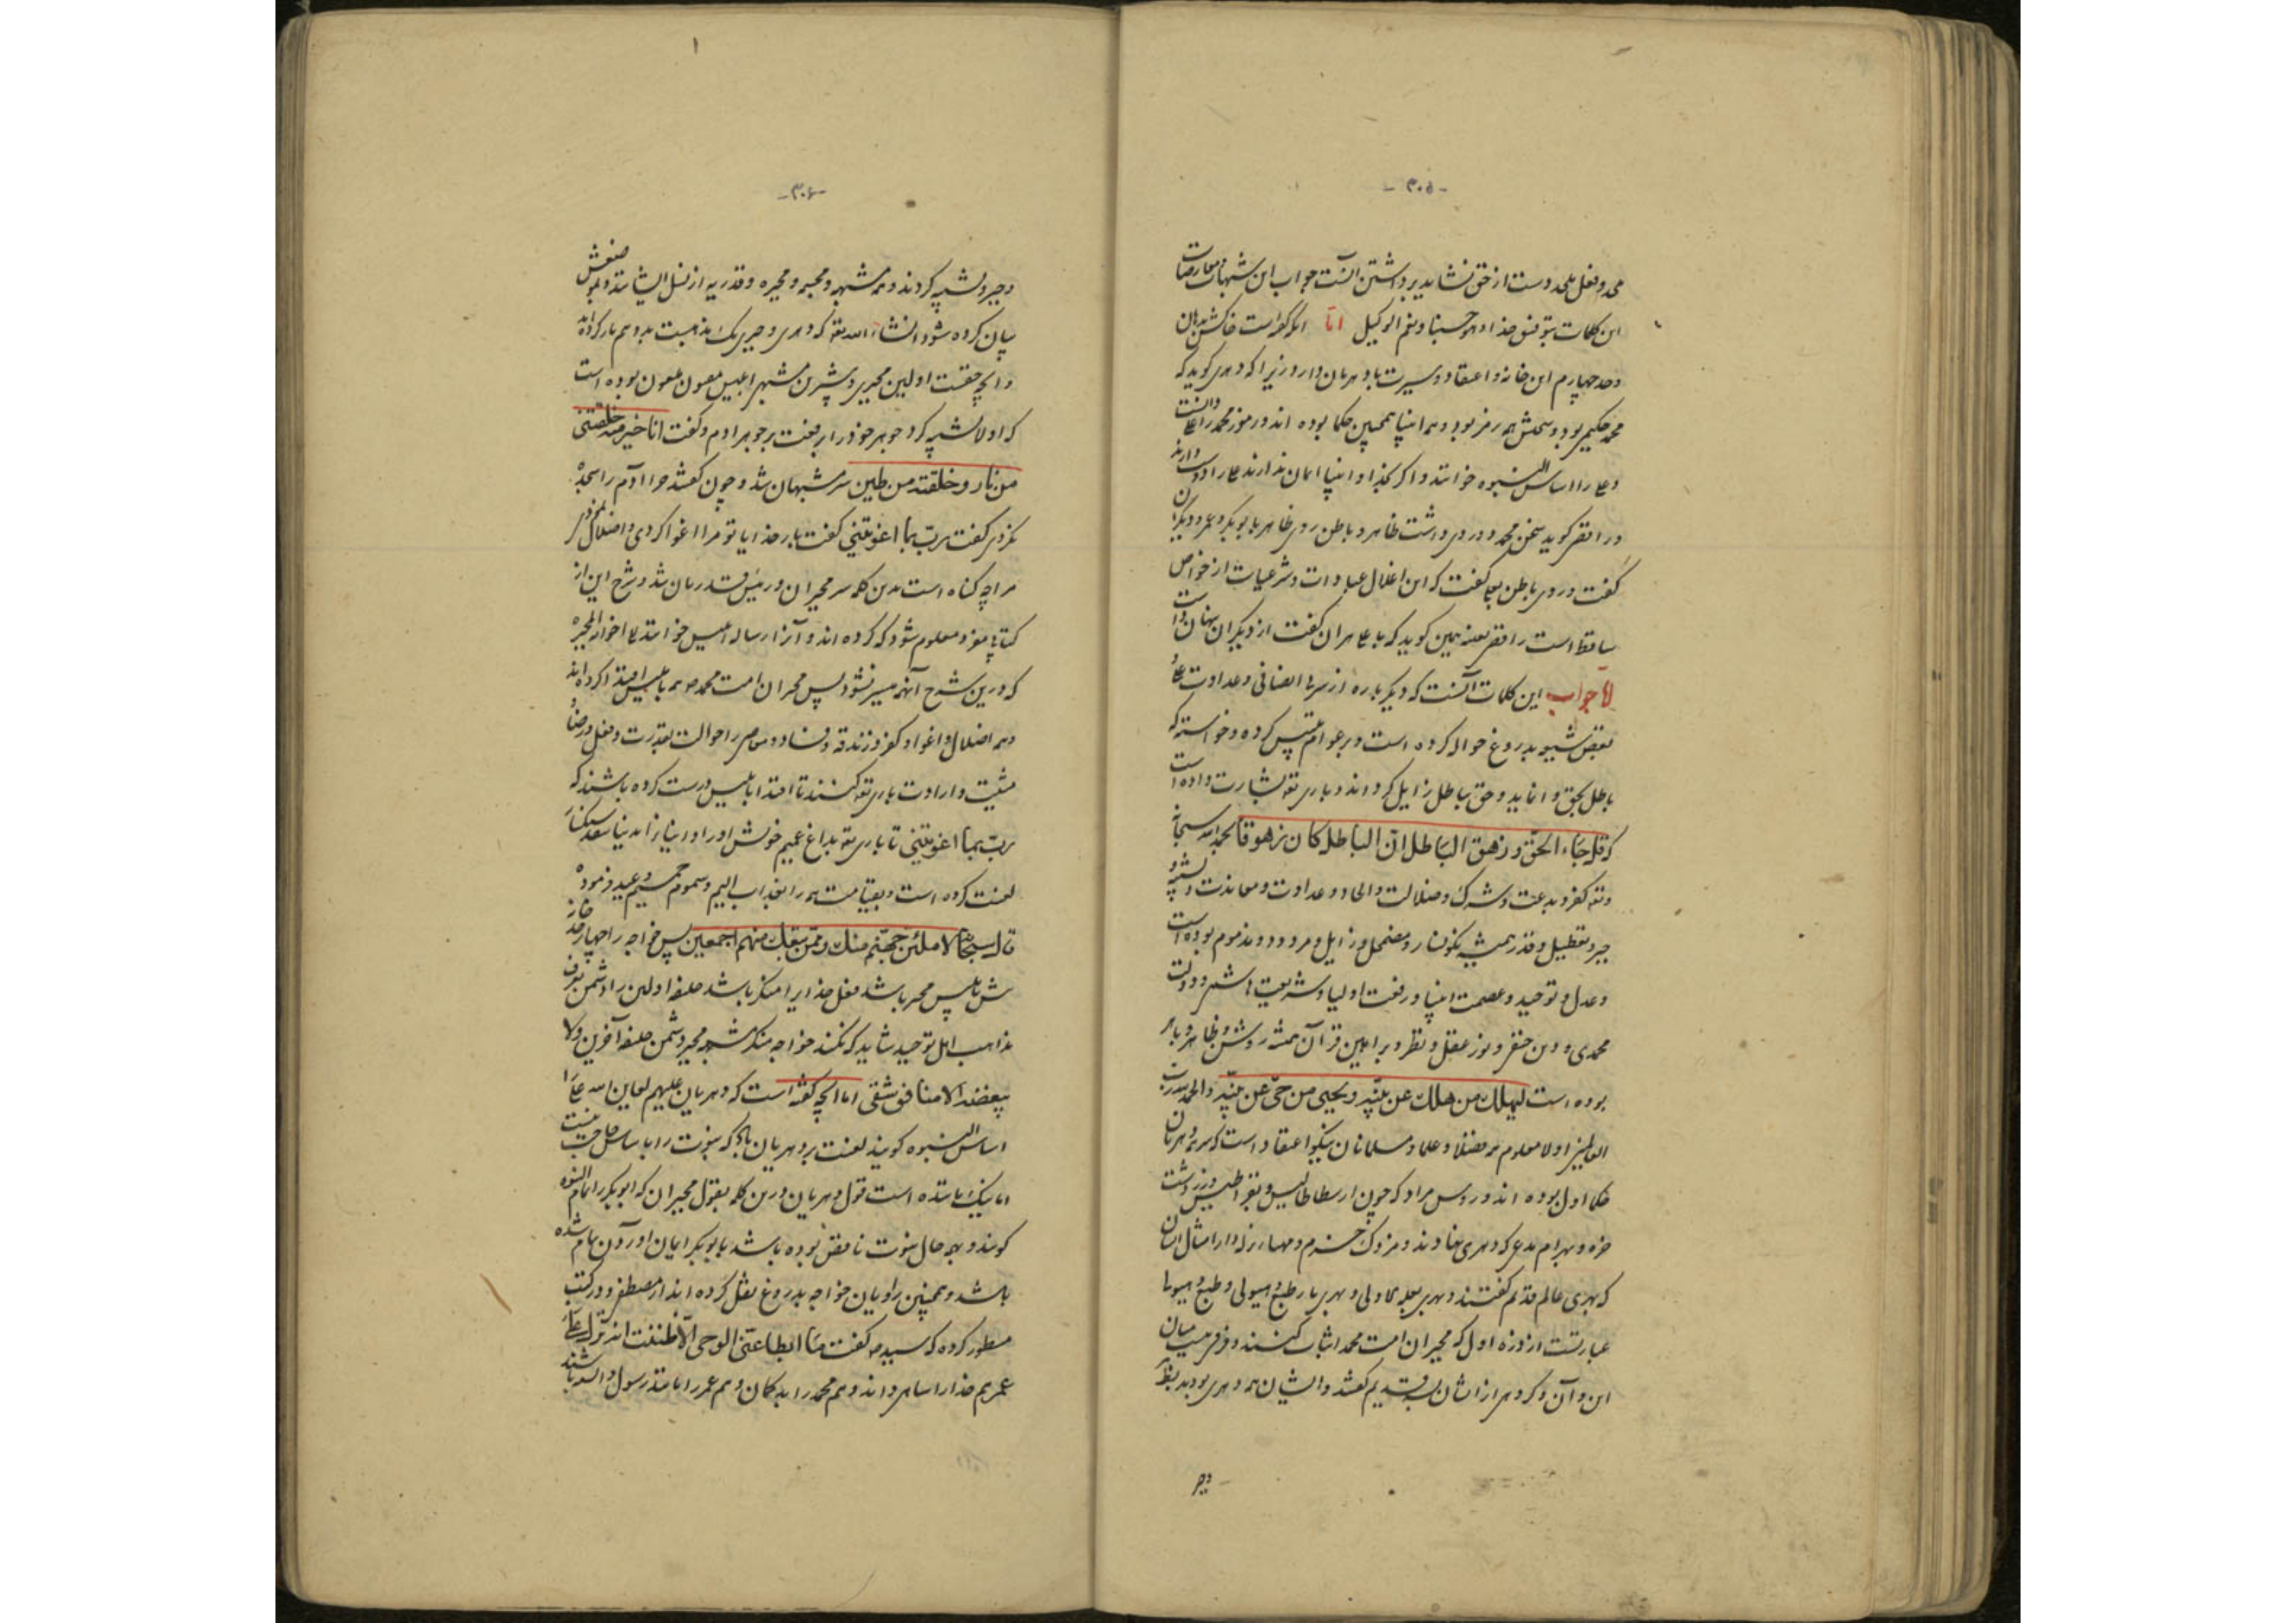 -۳۰۵-
این کلمات بتوفیق خدا و هو حسبنا و نعم الوکیل اما آنکه گفته است
وحد چهارم این خانه و اعتقاد و سیرت با دهریان دارد زیرا که دهری گوید که
محمد حکیمی بود و سخنش همه رمز بود و همه انبیا همچنین حکما بوده اند و رموز محمد را علی دانست
و علی را اساس النبوه خوانند و اگر بخدا و انبیا ایمان ندارند علی را دوست دارند
و رافضی گوید سخن محمد دو روی داشت ظاهر و باطن روی ظاهر با بوبکر و عمر و دیگران
گفت و روی باطن بعلی گفت که این افعال عبادات و شرعیات از خواص
ساقط است رافضی بعینه همین گوید که با علی هر آن گفت از دیگران پنهان داشت
اما جواب این کلمات آنست که دیگر باره از سر بی انصافی و عداوت علی
بعضی شیعه بدروغ حواله کرده است و بر عوام تلبیس کرده و خواسته که
باطل بحق وا نماید و حق بباطل زایل گرداند و باری تع بشارت داده است
که قل جاء الحق و زهق الباطل ان الباطل کان زهوقا بحمد الله سبحانه
وتع کفر و بدعت و شرک و ضلالت و الحاد و عداوت و معاندت و تشبیه
جبر و تعطیل و قدر همیشه نگونسار و مضمحل و زایل و مردود و مذموم بوده است
و عدل و توحید و عصمت انبیا و رفعت اولیا و شریعت هاشمی و دولت
محمدی و دین حنفی و نور عقل و نظر و براهین قرآن همیشه روشن و ظاهر و باهر
بوده است لیهلک من هلک عن بینه و یحیی من حی عن بینه و الحمد لله رب
العالمین اولا معلوم همه فضلا و علما و مسلمانان نیکو اعتقاد است که سر همه دهریان
حکما اول بوده اند و روس مراد که چون ارسطاطالیس و بقراطیس و زردشت
که بهری عالم قدیم گفتند و بهری بعله الاولی و بهری بار طبع و هیولی و طبع و هیولا
عبارتست از ذره اول که مجبران امت محمد اثبات کنند و فرقی نیست میان
این و آن و گروهی از ایشان بسه قدیم گفتند و ایشان همه دهری بودند بظاهر
و جبر
-۳۰۶-
و جبر و تشبیه کردند و همه مشبهه و مجسمه و مجبره و قدریه از نسل ایشانند و بموضعش
بیان کرده شود انشاء الله تع که دهری و جبری یک مذهبست بدو هم باز کرده اند
و آنچه حقیقت اولین مجبری و پیشترین مشبهی ابلیس ملعون بوده است
که اولا تشبیه کرد و جوهر خود را رفعت بر جوهر آدم و گفت انا خیر منه خلقتنی
من نار و خلقته من طین سر مشبهان شد و چون گفتند چرا آدم را سجده
نکردی گفت رب بما اغویتنی گفت بار خدایا تو مرا اغوا کردی و اضلال نمودی
مرا چه گناه است بدین کلمه سر مجبران و رئیس قدریان شد و شرح این از
کتابی مفرد معلوم شود که کرده اند و آنرا رساله ابلیس خوانند الی اخوانه المجبره
که درین شرح آن همه میسر نشود پس مجبران امت محمد همه بابلیس اقتدا کرده اند
و همه اضلال و اغوا و کفر و زندقه و فساد و معاصی را حوالت بقدرت و فعل و رضا و
مشیت و ارادت باری تع کنند تا اقتدا بابلیس درست کرده باشند که
رب بما اغویتنی تا باری تع بداغ عمیم خویش او را و اینانرا
لعنت کرده است و بقیامت همه را بعذاب الیم و سموم حمیم وعید فرموده
قال سبحانه لاملئن جهنم منک و ممن تبعک منهم اجمعین پس خواجه را چهار حد خانه
ش بابلیس مجبر باشد فعل خدایرا منکر باشد خلیفه اولین را دشمن
مذاهب اهل توحید شاید که نکند خواجه منکر مشبهه مجبر دشمن خلیفه آخرین و لا
یبغضه الا منافق شقی اما آنچه گفته است که دهریان علیهم لعاین الله علی را
اساس النبوه گویند لعنت بر دهریان باد که نبوت را باساس حاجت نیست
اما نیک ماننده است قول دهریان درین کلمه بقول مجبران که ابوبکر را امام النبوه
گویند و بهمه حال نبوت ناقص بوده باشد بابوبکر ایمان آوردن تمام شده
باشد و همچنین راویان خواجه بدروغ نقل کرده اند از مصطفی و در کتب
مسطور کرده که سید ص گفت ما ابطا عنی الوحی الا ظننت انه نزل علی
عمر هم خدا را ساهی داند و هم محمد را بدگمان و هم عمر را مانند رسول دانسته باشند